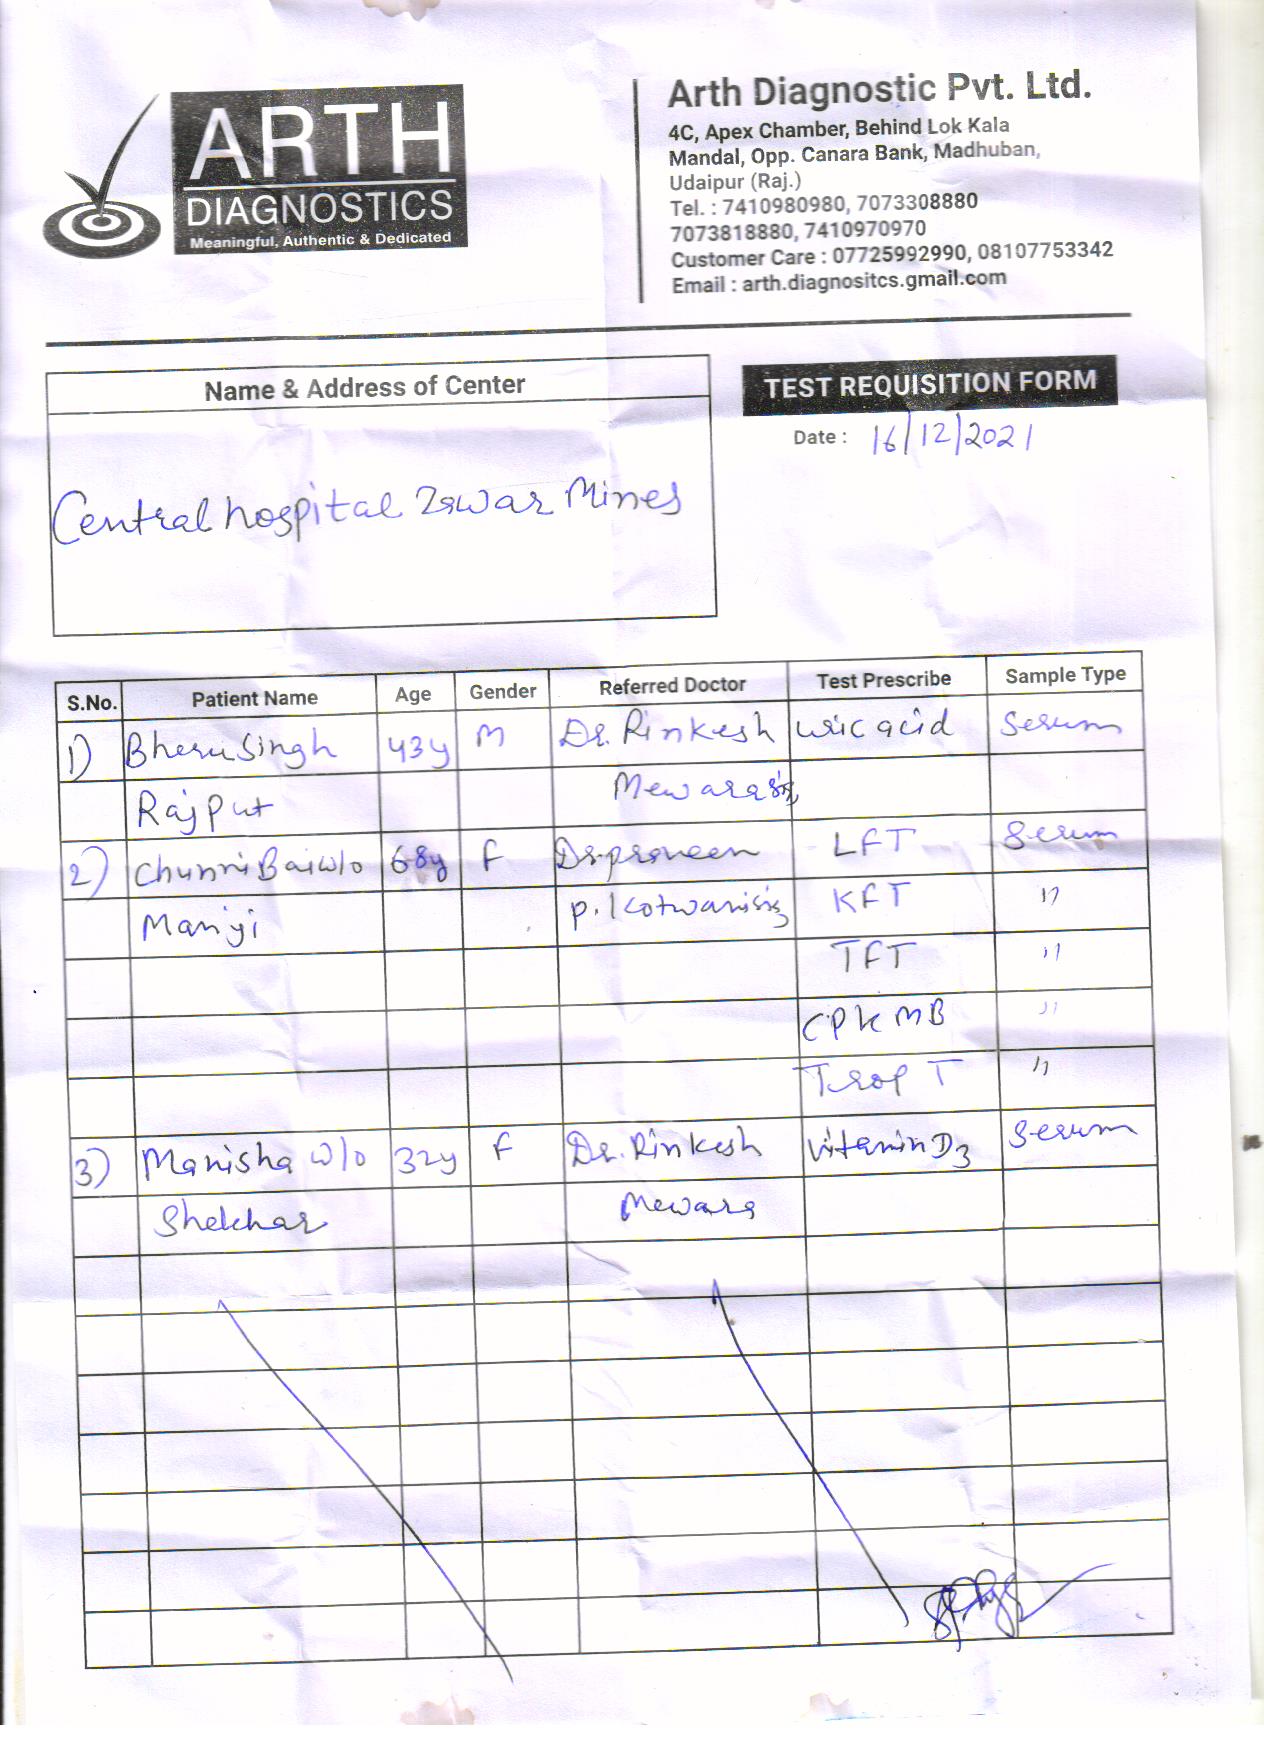 ARTH
DIAGNOSTICS
Meaningful, Authentic & Dedicated
Arth Diagnostic Pvt. Ltd.
4C, Apex Chamber, Behind Lok Kala
Mandal, Opp. Canara Bank, Madhuban,
Udaipur (Raj.)
Tel. : 7410980980, 7073308880
7073818880, 7410970970
Customer Care : 07725992990, 08107753342
Email : arth.diagnositcs.gmail.com
Name & Address of Center
TEST REQUISITION FORM
Date : 16/12/2021
Central hospital Zawar Mines
S.No. Patient Name Age Gender Referred Doctor Test Prescribe Sample Type
1) Bheru Singh 43y M Dr. Rinkesh uric acid Serum
Rajput
2) Chunni Bai w/o 68y F Dr. praveen LFT Serum
Manji p. KFT "
TFT "
CPK MB "
Trop T "
3) Manisha w/o 32y F Dr. Rinkesh Vitamin D3 Serum
Shekhar Mewara